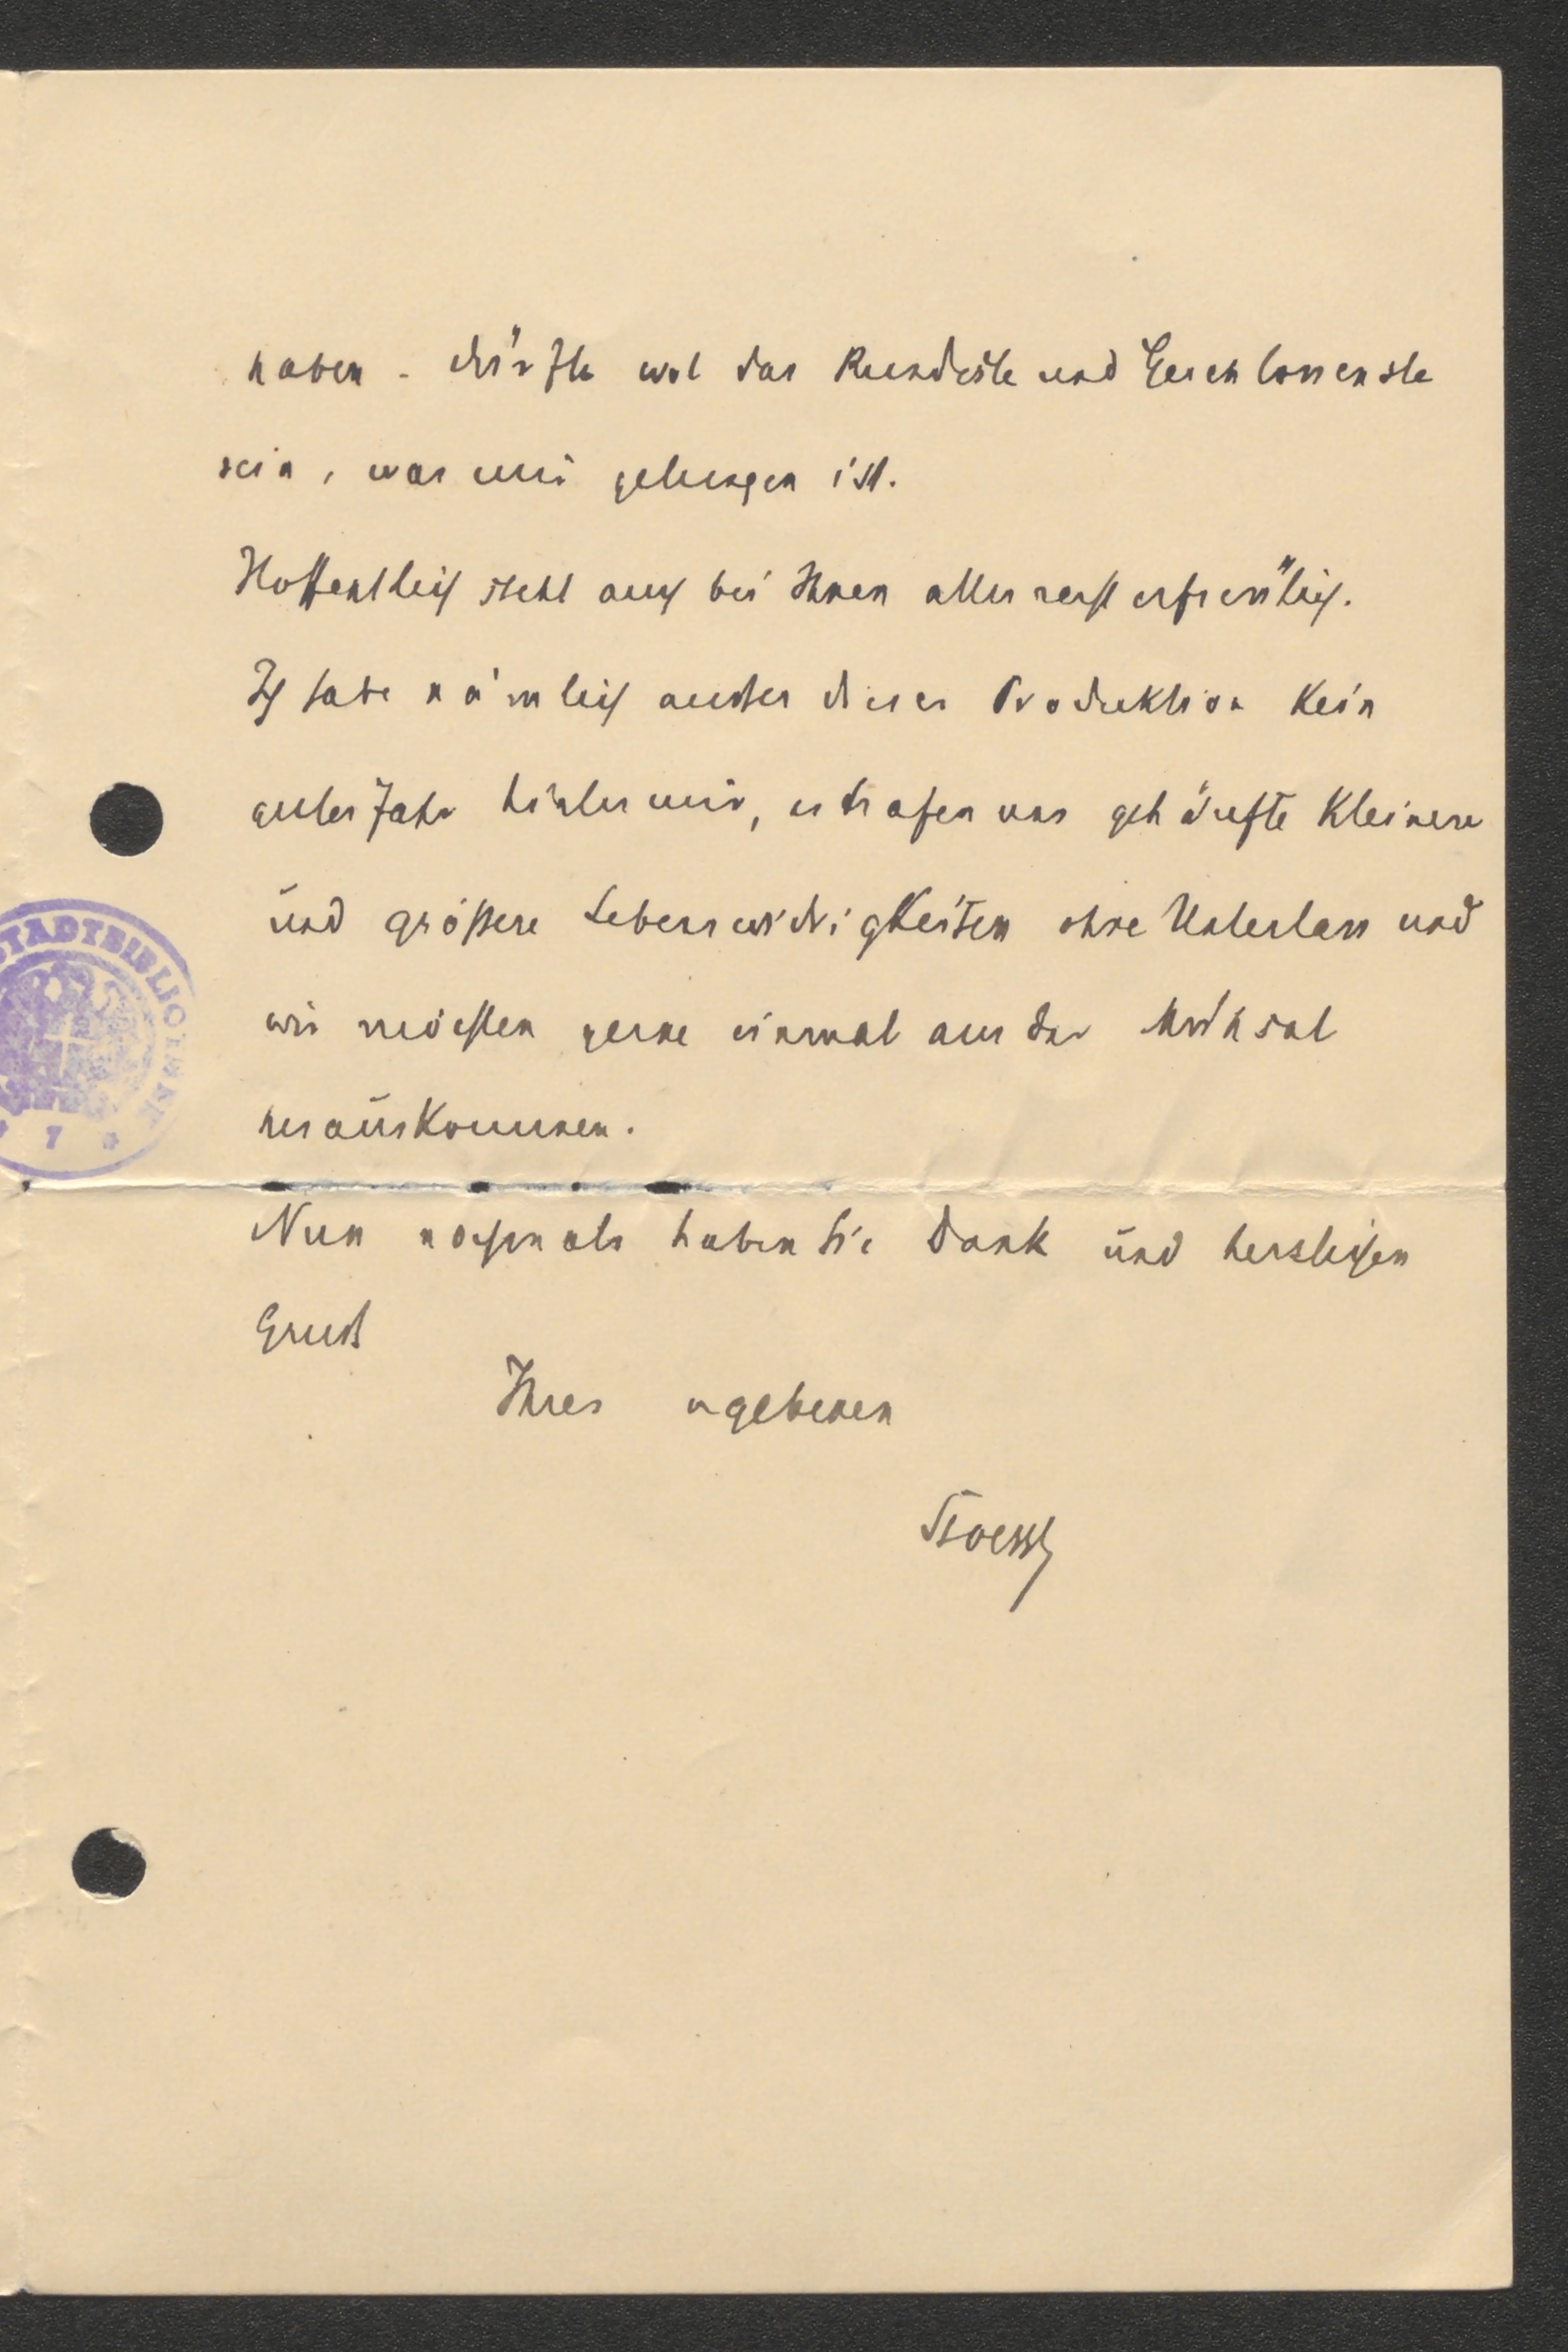 haben - dürfte wol das Rundeste und Geschlossenste
sein, was mir gelungen ist.
Hoffentlich steht auch bei Ihnen alles recht erfreulich.
Ich habe nämlich ausser dieser Produktion kein
gutes Jahr hinter mir, es trafen uns gehäufte kleinere
und größere Lebenswidrigkeiten ohne Unterlass und
wir möchten gerne einmal aus der Mühsal
herauskommen.
Nun nochmals haben Sie Dank und herzlichen
Gruß
Ihres ergebenen
Stoessl
STADTBIBLIOTHEK
7